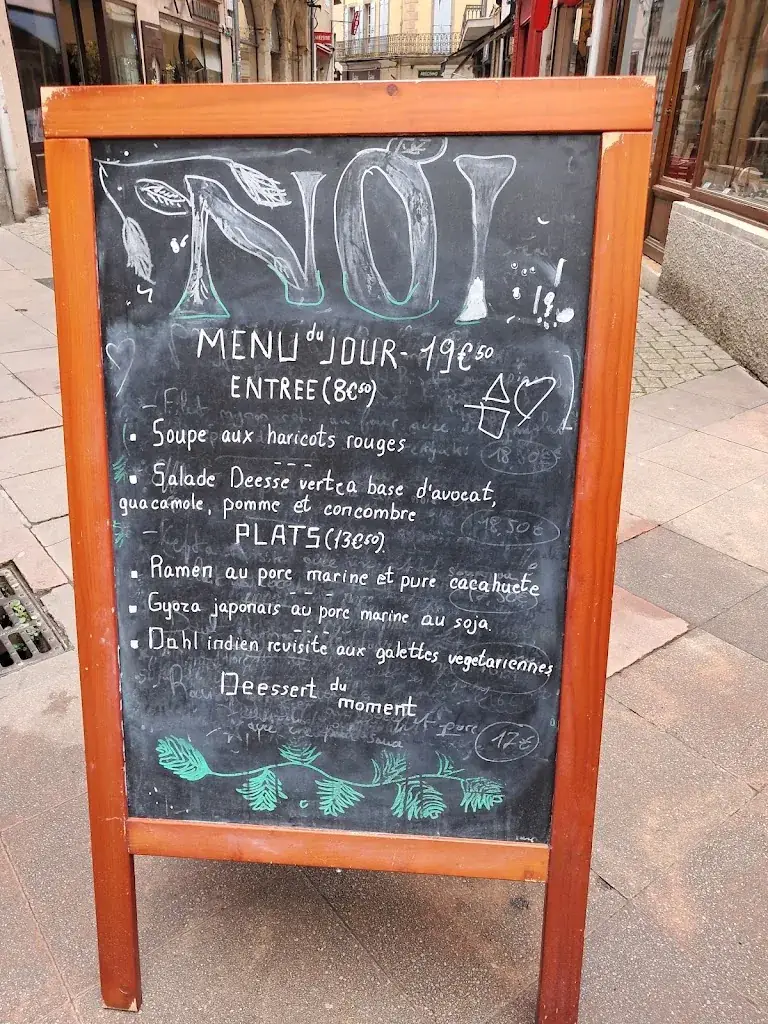 NOI
MENU du JOUR - 19€50
ENTREE (8€50)
• Soupe aux haricots rouges
---
• Salade Deesse verte a base d'avocat,
guacamole, pomme et concombre
PLATS (13€50)
• Ramen au porc marine et pure cacahuete
---
• Gyoza japonais au porc marine au soja.
---
• Dahl indien revisité aux galettes vegetariennes
Deessert du
moment
18.50€
18,50€
17€